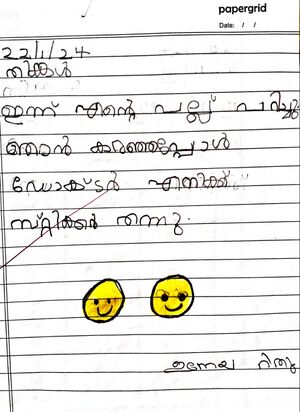 papergrid
Date: / /
22/1/24
തിങ്കൾ
ഇന്ന് എന്റെ പല്ല് പറിച്ചു
ഞാൻ കരഞ്ഞപ്പോൾ
ഡോക്ടർ എനിക്ക്
സ്റ്റിക്കർ തന്നു.
റിതു